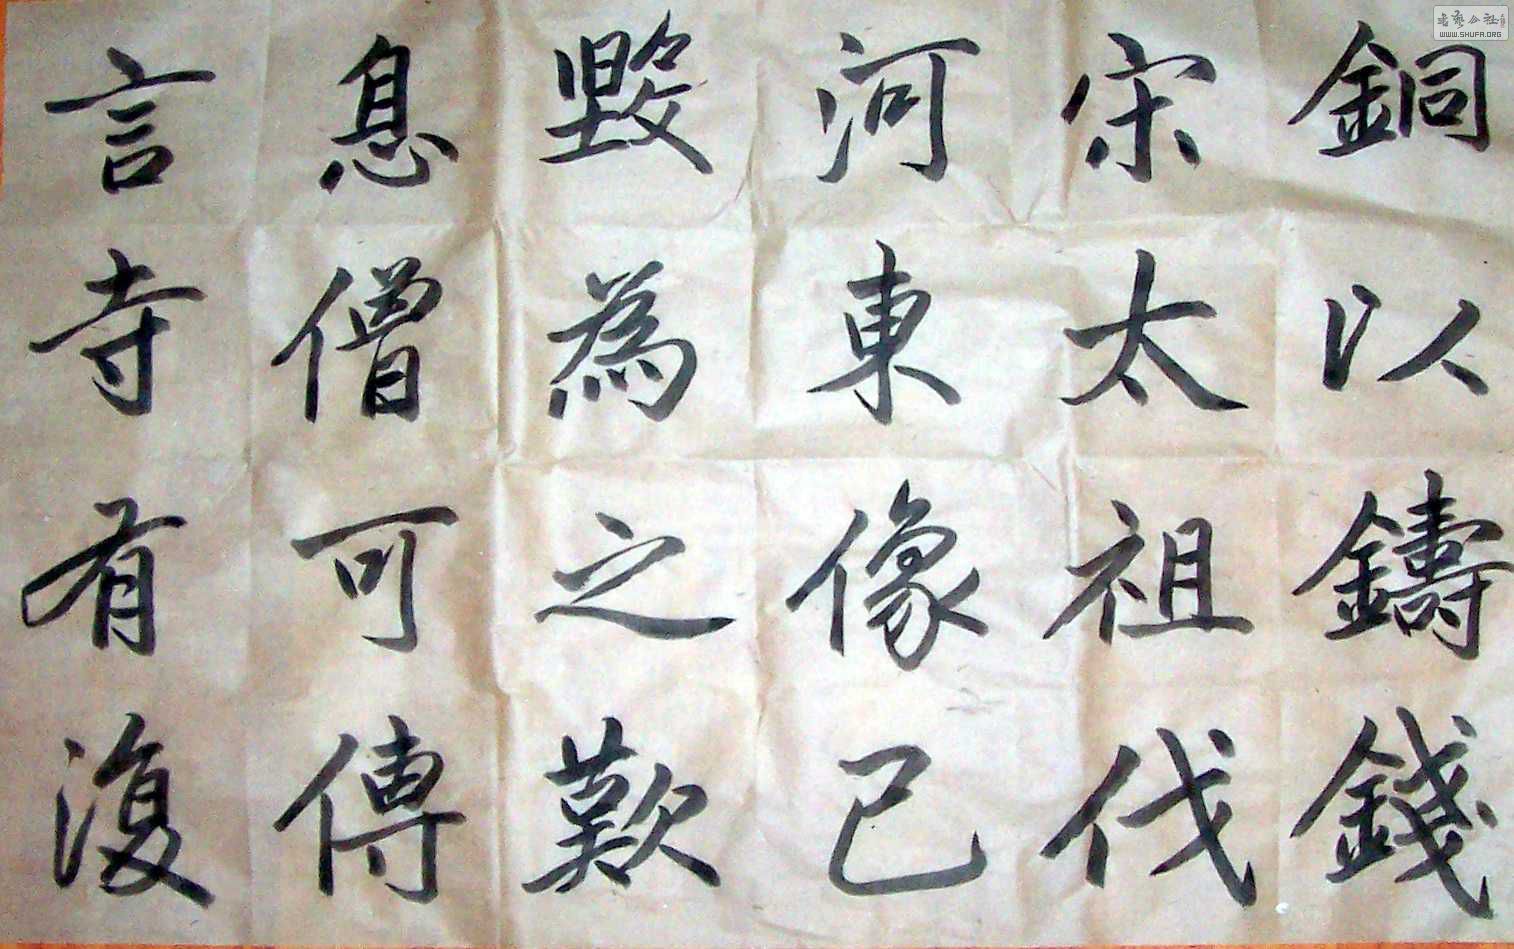 銅以鑄錢
宋太祖伐
河東像已
毀為之歎
息僧可傳
言寺有復
老藝公社
WWW.SHUFA.ORG